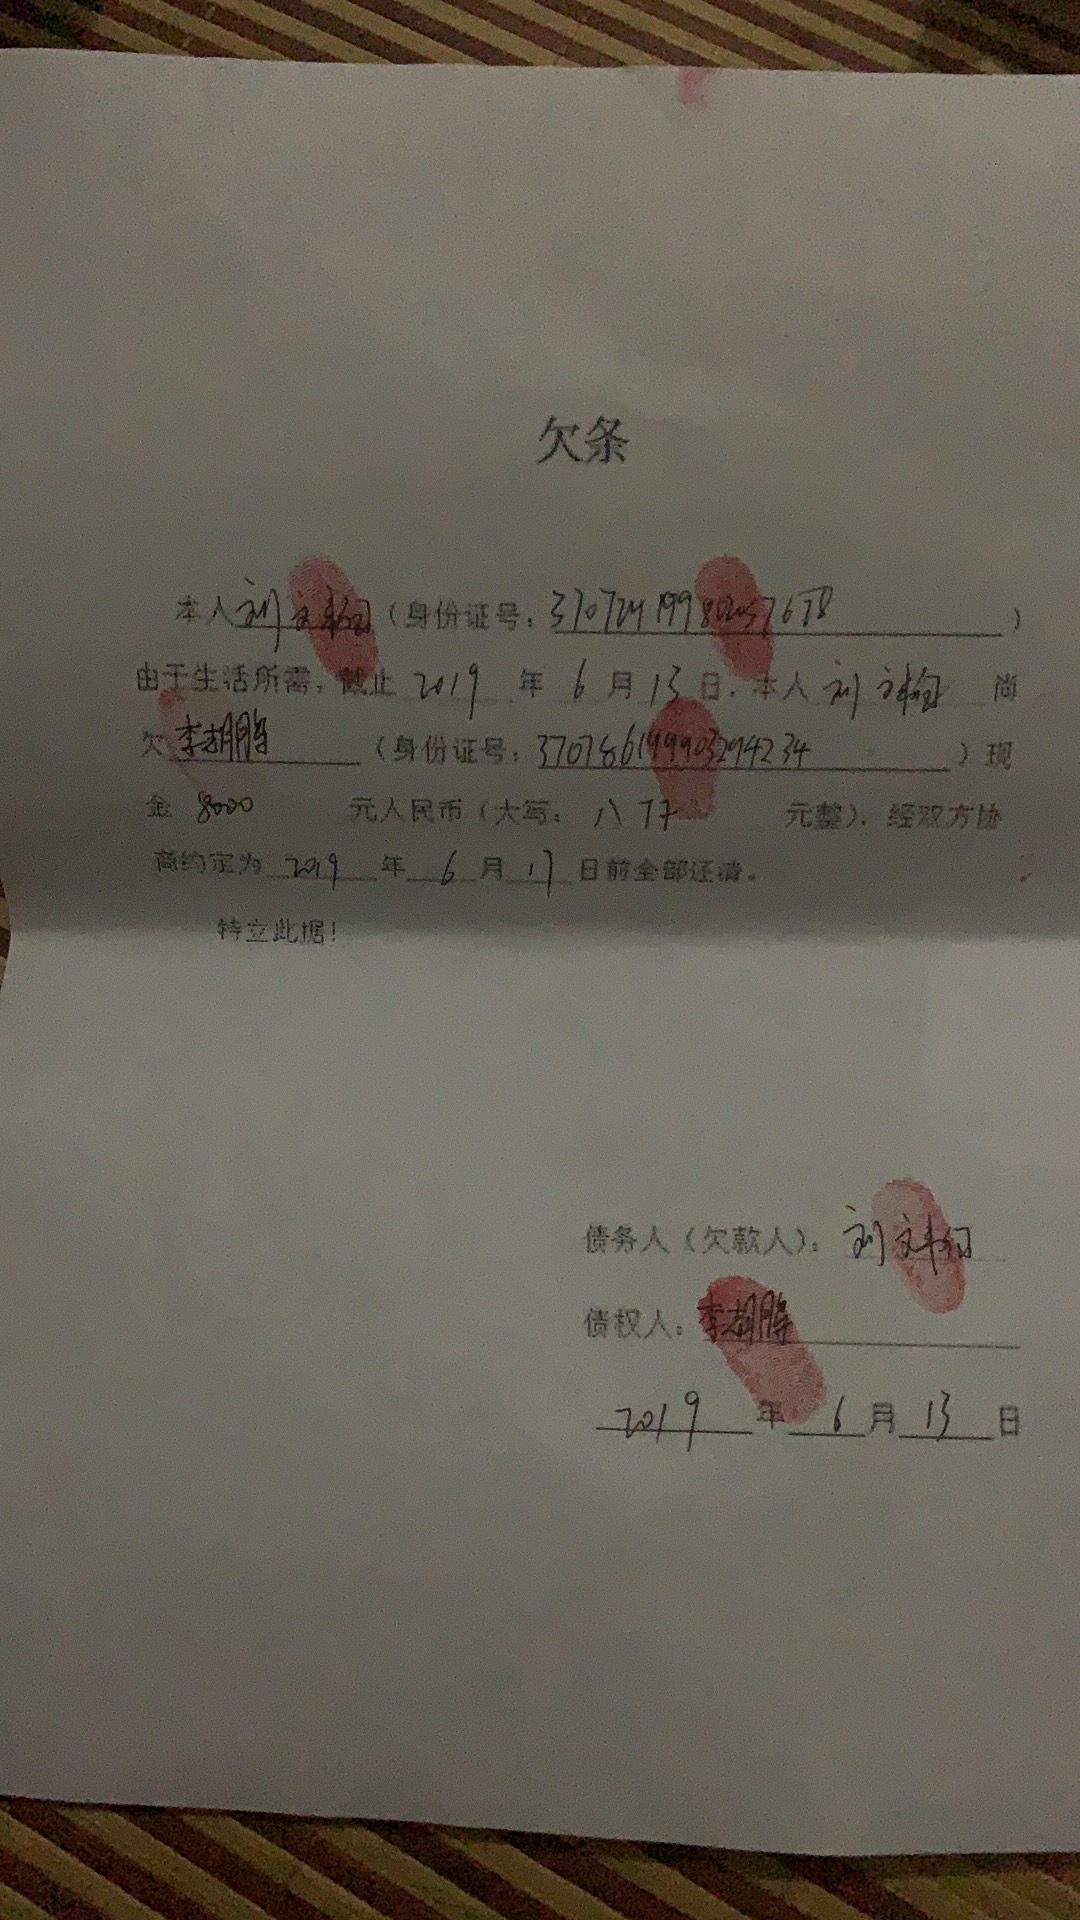 欠条
本人刘文 （身份证号：3707241998 7678）
由于生活所需，截止 2019 年 6 月 13 日，本人 刘文 尚
欠 李朝腾 （身份证号：370786199903294234）现
金 8000 元人民币（大写： 八千 元整）。经双方协
商约定为 2019 年 6 月 17 日前全部还清。
特立此据！
债务人（欠款人）：刘文
债权人：李朝腾
2019 年 6 月 13 日